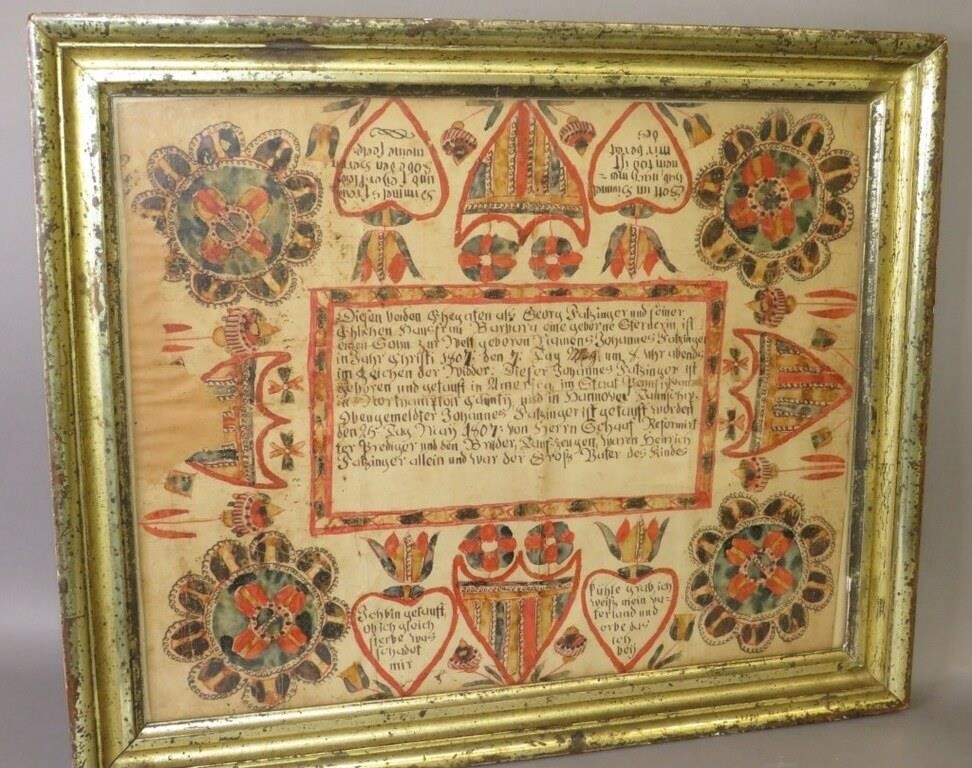 Diesen beiden Ehegatten als Georg Fatzinger und seiner
Ehlichen Hausfrau Barbara eine geborne Sterderin ist
einen Sohn zur Welt geboren Namens Johannes Fatzinger
in Jahr Christi 1807 den 7. Tag um 8 uhr abends
im Zeichen der Widder. Dieser Johannes Fatzinger ist
gehoren und getauft in America im Staat Pennsylvani
Northampton County und in Hannover Taunschip
Obengemeldter Johannes Fatzinger ist getauft worden
den 25 Tag May 1807 von Herrn Schaaf Reformirt
ter Prediger und den Brüder, Taufzeugen waren Henrich
Fatzinger allein und war der Groß Vater des Kindes
Ich bin getauft,
ob ich gleich
sterbe was
schadet
mir
kühle grab, ich
weiß mein va-
terland und
erbe das
ich
bey
Gott im Himmel
hab, nach mei-
nem tod ist
mir bereit
des
Himmels freud
und
meine